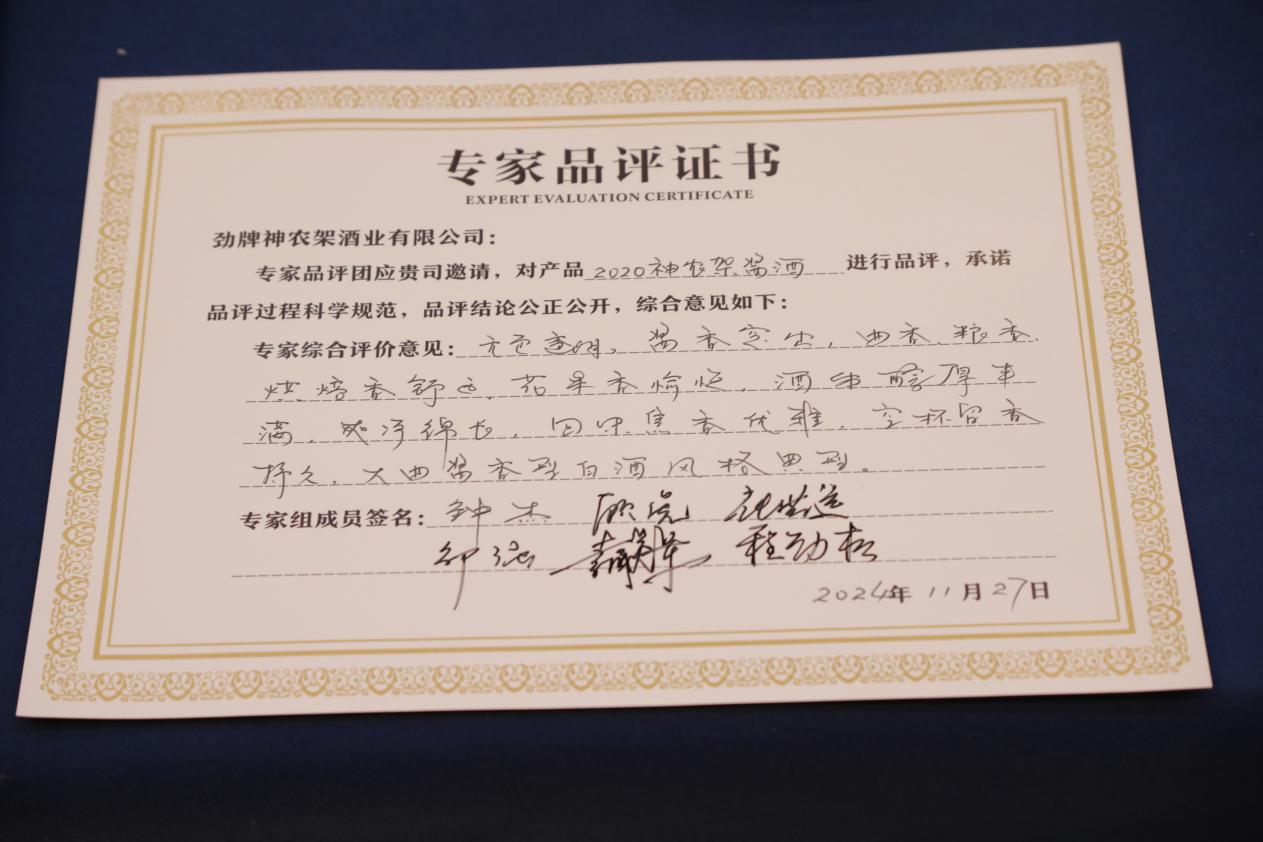 专家品评证书
EXPERT EVALUATION CERTIFICATE
劲牌神农架酒业有限公司：
专家品评团应贵司邀请，对产品2020神农架酱酒进行品评，承诺
品评过程科学规范，品评结论公正公开，综合意见如下：
专家综合评价意见：无色透明，酱香突出，曲香、粮香、
烘焙香舒适，花果香愉悦，酒体醇厚丰
满、爽净绵长，回味焦香优雅，空杯留香
持久，大曲酱香型白酒风格典型。
专家组成员签名：钟杰
程劲松
2024年11月27日